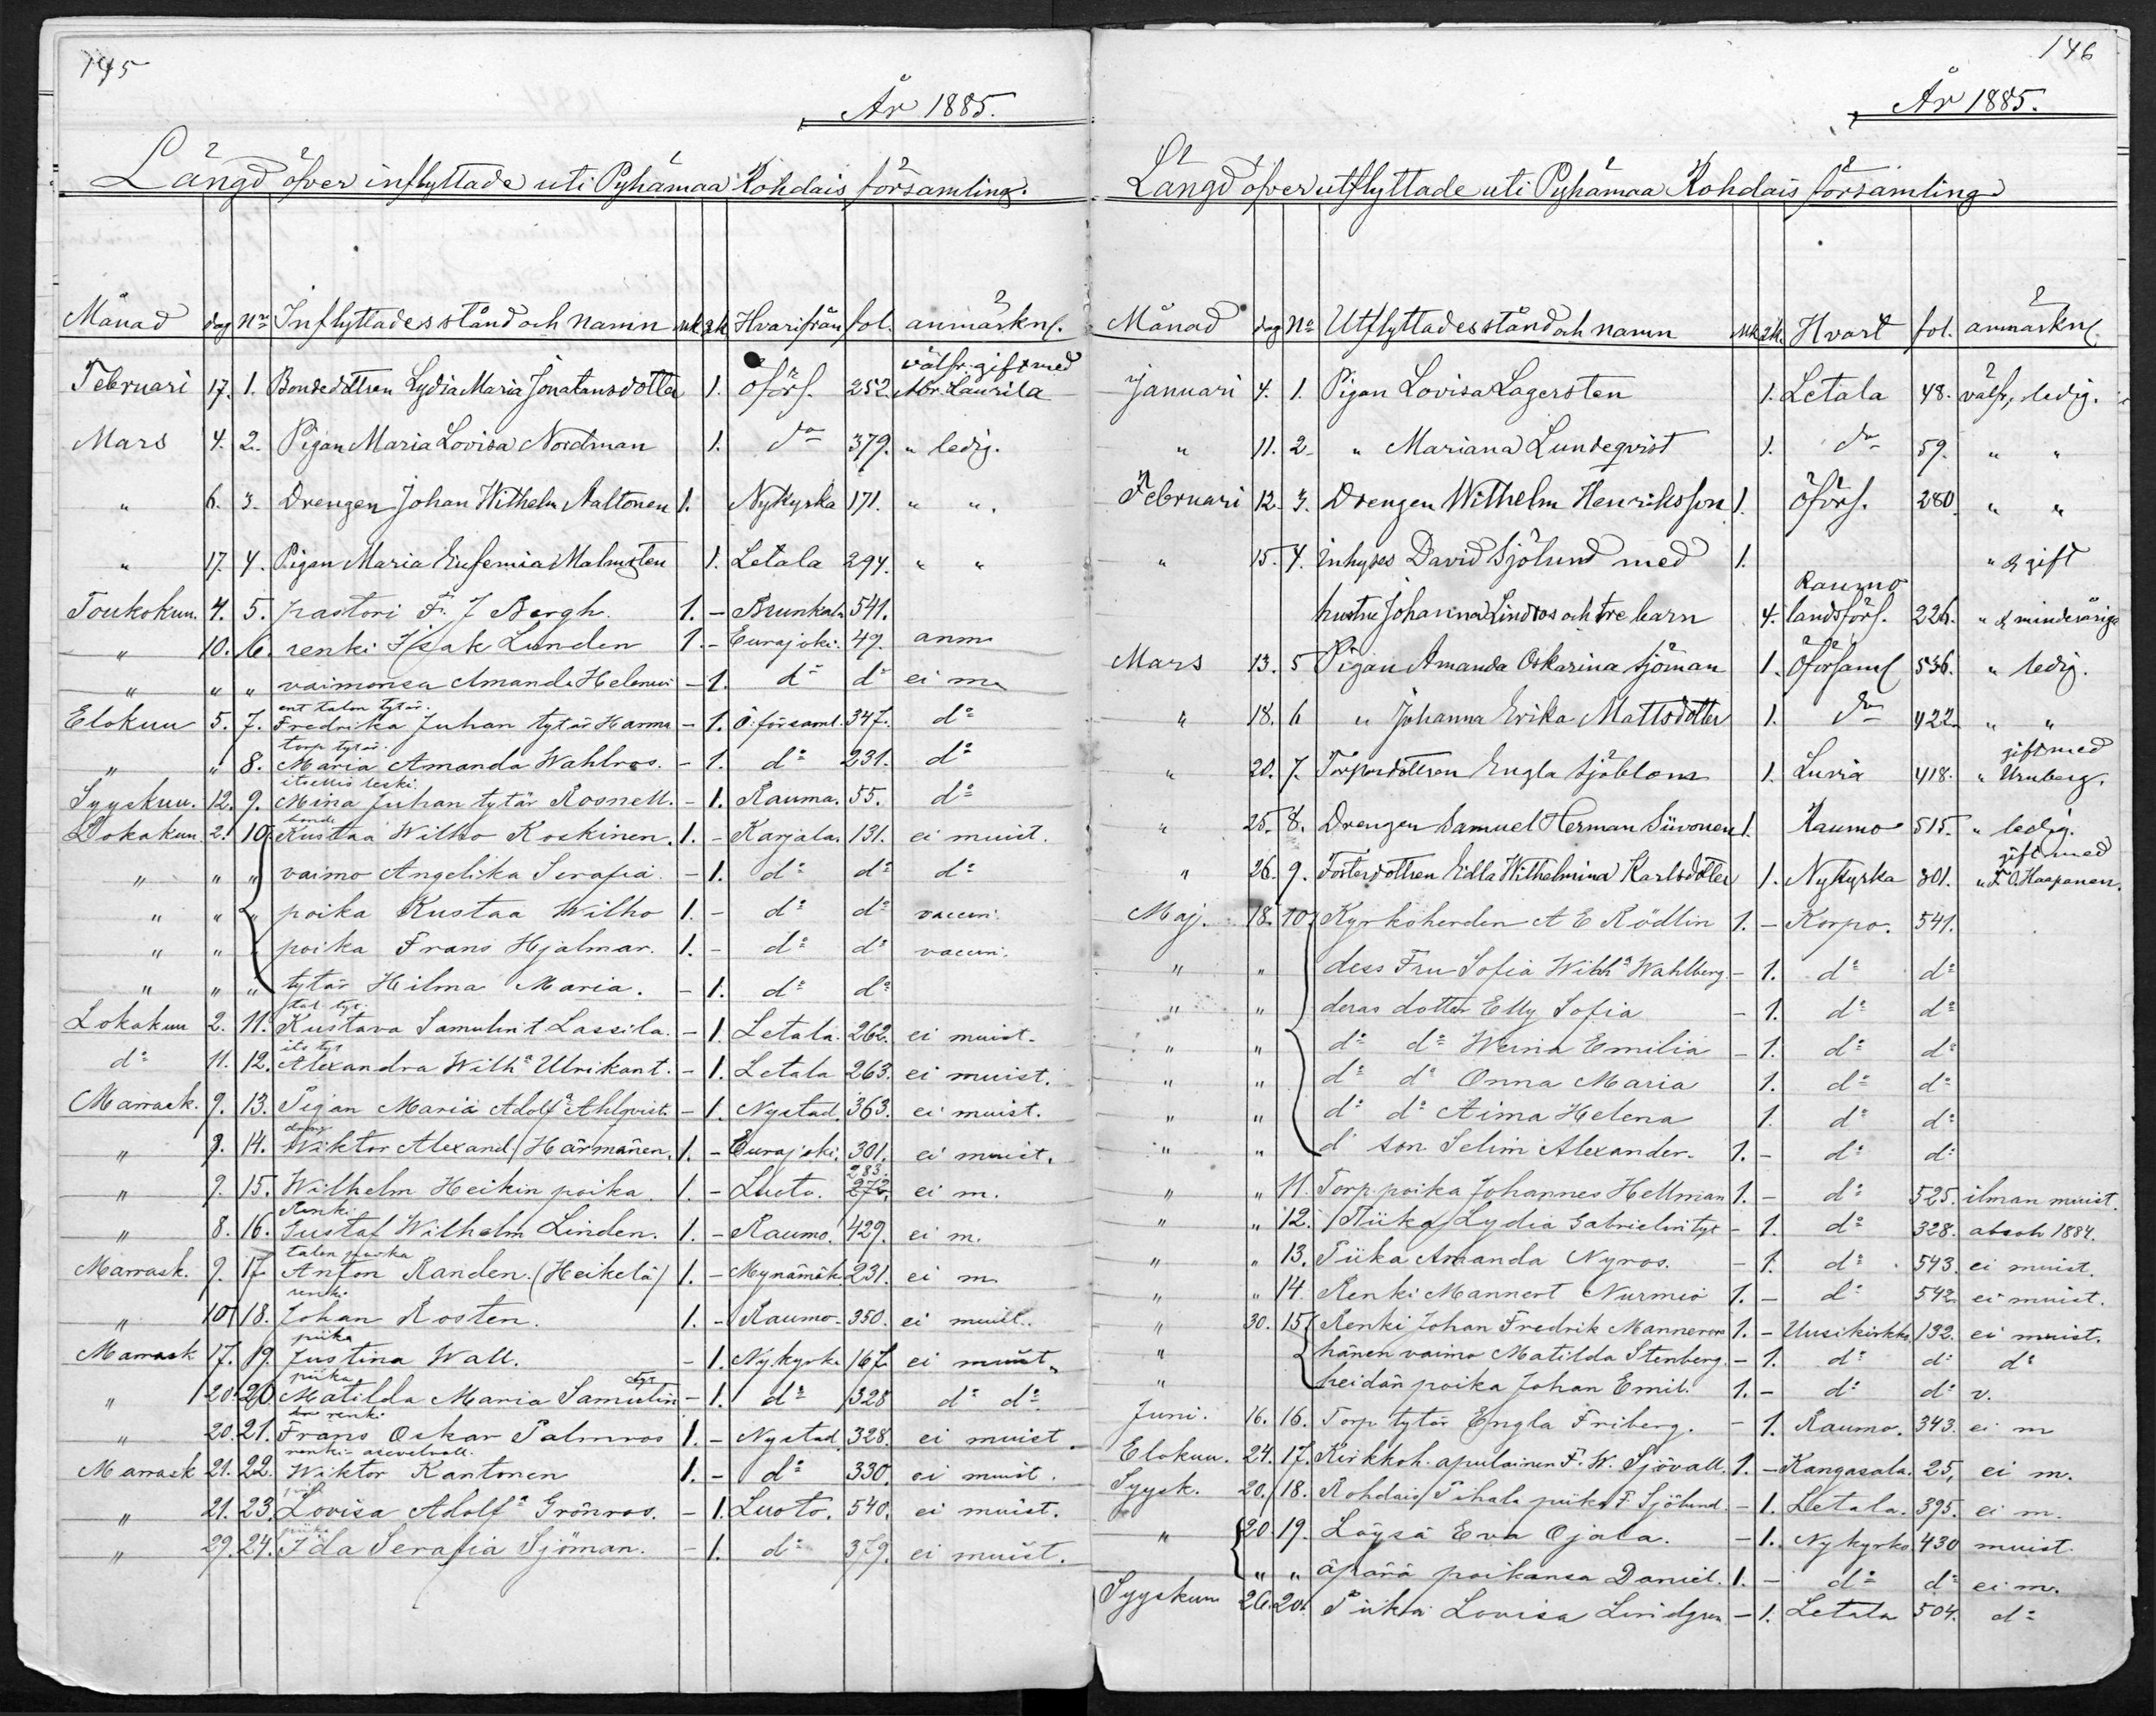 145
År 1885.
Längd öfver inflyttade uti Pyhämaa Rohdais församling.
Månad dag No Inflyttades stånd och namn mk qk Hvarifrån fol. anmärkn.
välfr. gift med
Februari 17. 1. Bondedottren Lydia Maria Jonatansdotter 1. Öförs. 252. Laurila
Mars 4. 2. Pigan Maria Lovisa Nordman 1. do 379. " ledig.
" 6. 3. Drengen Johan Wilhelm Aaltonen 1. Nykyrka 171. " "
" 17. 4. Pigan Maria Eufemia Malmsten 1. Letala 294. " "
Toukokuu. 4. 5. pastori Fr. J Bergh. 1. - Brunkala 541.
" 10. 6. renki Isak Lunden 1. - Eurajoki. 49. anm
" " " vaimonsa Amanda Helena - 1. do do ei m
ent talon tytär.
Elokuu 5. 7. Fredrika Juhan tytär Hanna - 1. Ö. församl. 347. do
torp tytär.
" " 8. Maria Amanda Wahlros. - 1. do 231. do
itsellis leski.
Syyskuu. 12. 9. Mina Juhan tytär Rosnell. - 1. Rauma. 55. do
bonde
Lokakuu. 2. 10. Kustaa Wilho Koskinen. 1. - Karjala. 131. ei muist.
" " " vaimo Angelika Serafia. - 1. do do do
" " " poika Kustaa Wilho 1. - do do vaccin.
" " " poika Frans Hjalmar. 1. - do do vaccin.
" " " tytär Hilma Maria. - 1. do do
tal. tyt.
Lokakuu 2. 11. Kustava Samulin t Lassila. - 1. Letala. 262. ei muist.
its tyt
do 11. 12. Alexandra Wilha Ulrikant. - 1. Letala 263. ei muist.
Marrask. 9. 13. Pigan Maria Adolfa Ahlqvist. - 1. Nystad. 363. ei muist.
dreng
" 9. 14. Wiktor Alexand. Härmänen. 1. - Eurajoki. 301. ei muist.
283.
" 9. 15. Wilhelm Heikin poika. 1. - Luoto. 272. ei m.
Renki
" 8. 16. Gustaf Wilhelm Linden. 1. - Raumo. 429. ei m.
talon poika
Marrask. 9. 17 Anton Randen. (Heikelä) 1. - Mynämäk. 231. ei m
renki
" 10. 18. Johan Rosten. 1. - Raumo. 350. ei muist.
piika
Marrask 17. 19. Justina Wall. - 1. Nykyrka 167. ei muist.
piika tyt
" 20. 20 Matilda Maria Samulin - 1. do 328 do do
renki
" 20. 21. Frans Oskar Palmros 1. - Nystad. 328. ei muist.
renki - asevelvoll.
Marrask 21. 22. Wiktor Kantonen 1. - do 330. ei muist.
" 21. 23. Lovisa Adolfa Grönros. - 1. Luoto. 540. ei muist.
piika
" 29. 24. Ida Serafia Sjöman. - 1. do 379. ei muist.
146
År 1885.
Längd öfver utflyttade uti Pyhämaa Rohdais församling
Månad dag No Utflyttades stånd och namn Mk qk. Hvart fol. anmärkn.
Januari 4. 1. Pigan Lovisa Lagersten 1. Letala 48. välfr, ledig.
" 11. 2. " Mariana Lundeqvist 1. do 59. " "
Februari 12. 3. Drengen Wilhelm Henriksson 1. Öförs. 280 " "
" 15. 4. Inhyses David Sjölund med 1. " & gift
Raumo
hustru Johanna Lindros och tre barn 4. landsförs. 226. " & minderåriga
Mars 13. 5 Pigan Amanda Oskarina Sjöman 1. Öförsaml 536. " ledig.
" 18. 6 " Johanna Erika Mattsdotter 1. do 422 " "
gift med
" 20. 7. Torparedottren Engla Sjöblom 1. Luvia 418. " Uruberg.
" 25. 8. Drengen Samuel Herman Siivonen 1. Raumo 515. " ledig.
gift med
" 26. 9. Fosterdottren Eidla Wilhelmina Karlsdotter 1. Nykyrka 301. " F. O. Haapanen.
Maj. 18. 10. Kyrkoherden A E Rödlin 1. - Korpo. 541.
" " dess Fru Sofia Wilha Wahlberg. - 1. do do
" " deras dotter Elly Sofia - 1. do do
" " do do Weina Emilia - 1. do do
" " do do Onna Maria 1. do do
" " do do Aima Helena 1. do do
" " do son Selim Alexander. 1. - do do
" " 11. Torp. poika Johannes Hellman 1. - do 525. ilman muist.
" " 12. Piika Lydia Gabrielin tyt - 1. do 328. absolv 1884.
" " 13. Piika Amanda Nyros. - 1. do 543. ei muist.
" " 14. Renki Mannert Nurmio 1. - do 542. ei muist.
" 30. 15. Renki Johan Fredrik Manneroos 1. - Uusikirkko. 132. ei muist.
" hänen vaimo Matilda Stenberg. - 1. do do do
" heidän poika Johan Emil. 1. - do do v.
Juni. 16. 16. Torp tytär Engla Friberg. - 1. Raumo. 343. ei m
Elokuu. 24. 17. Kirkkoh. apulainen F. W. Sjövall. 1. - Kangasala. 25, ei m.
Syysk. 20. 18. Rohdais Pihala piika F. Sjölund. - 1. Letala. 395. ei m.
" 20 19. Löysä Eva Ojala. - 1. Nykyrko. 430 muist.
" " äpärä poikansa Daniel. 1. - do do ei m.
Syyskuu 26. 20. Piika Lovisa Lindgren - 1. Letala 504. do